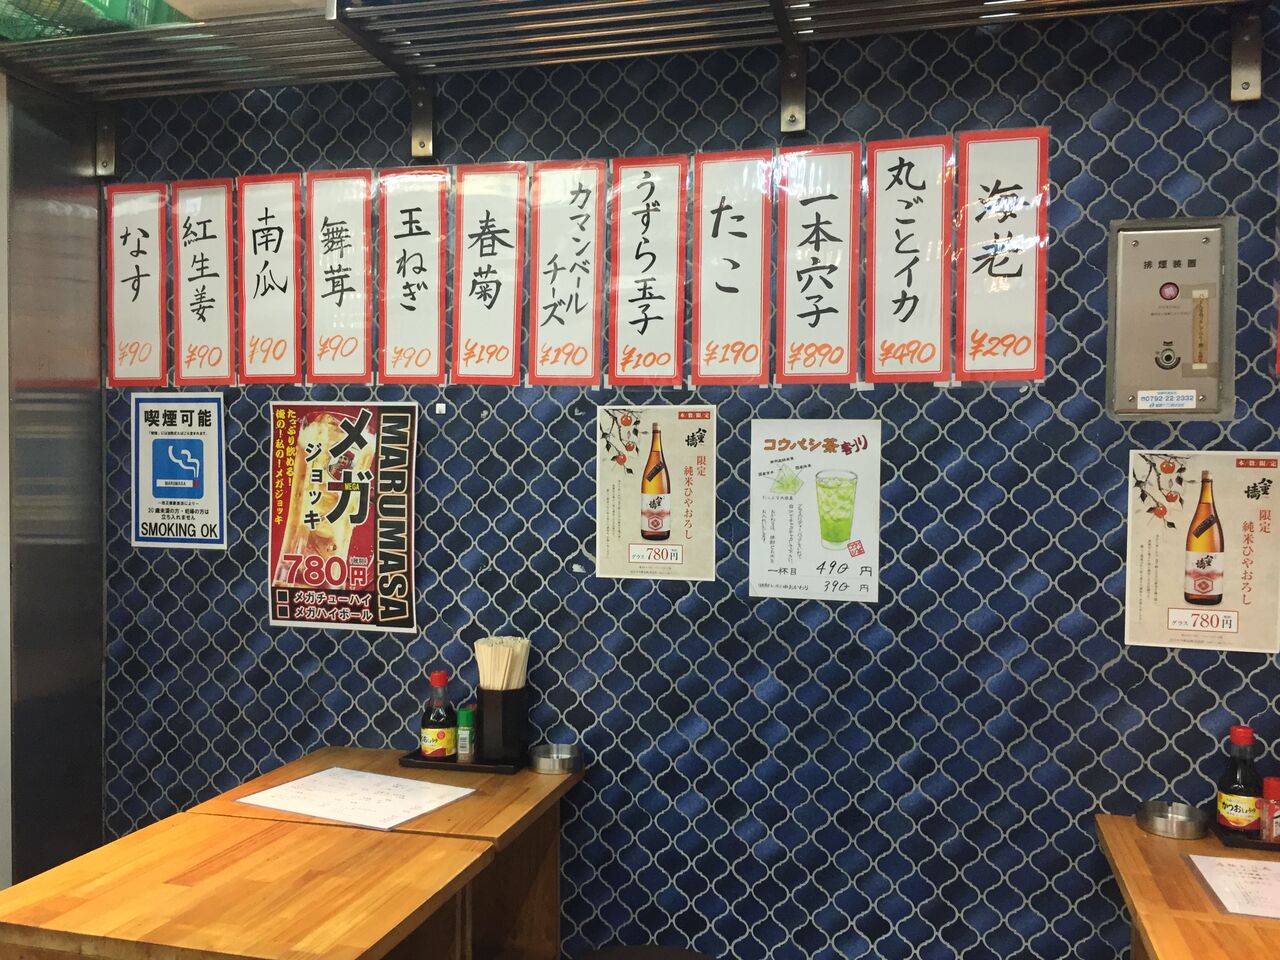 なす
¥90
紅生姜
¥90
南瓜
¥90
舞茸
¥90
玉ねぎ
¥90
春菊
¥190
カマンベール
チーズ
¥190
うずら玉子
¥100
たこ
¥190
一本穴子
¥890
丸ごとイカ
¥490
海老
¥290
排煙装置
☎0792-22-2332
喫煙可能
MARUMASA
20歳未満の方・妊婦の方は
立ち入れません
SMOKING OK
たっぷり飲める!
俺の!私の!メガジョッキ
メガ
MEGA
ジョッキ
MARUMASA
780円
メガチューハイ
メガハイボール
本数限定
限定
純米ひやおろし
グラス 780円
コウバシ茶割り
一杯目 490円
中おかわり 390円
本数限定
限定
純米ひやおろし
グラス 780円
かつおしょうゆ